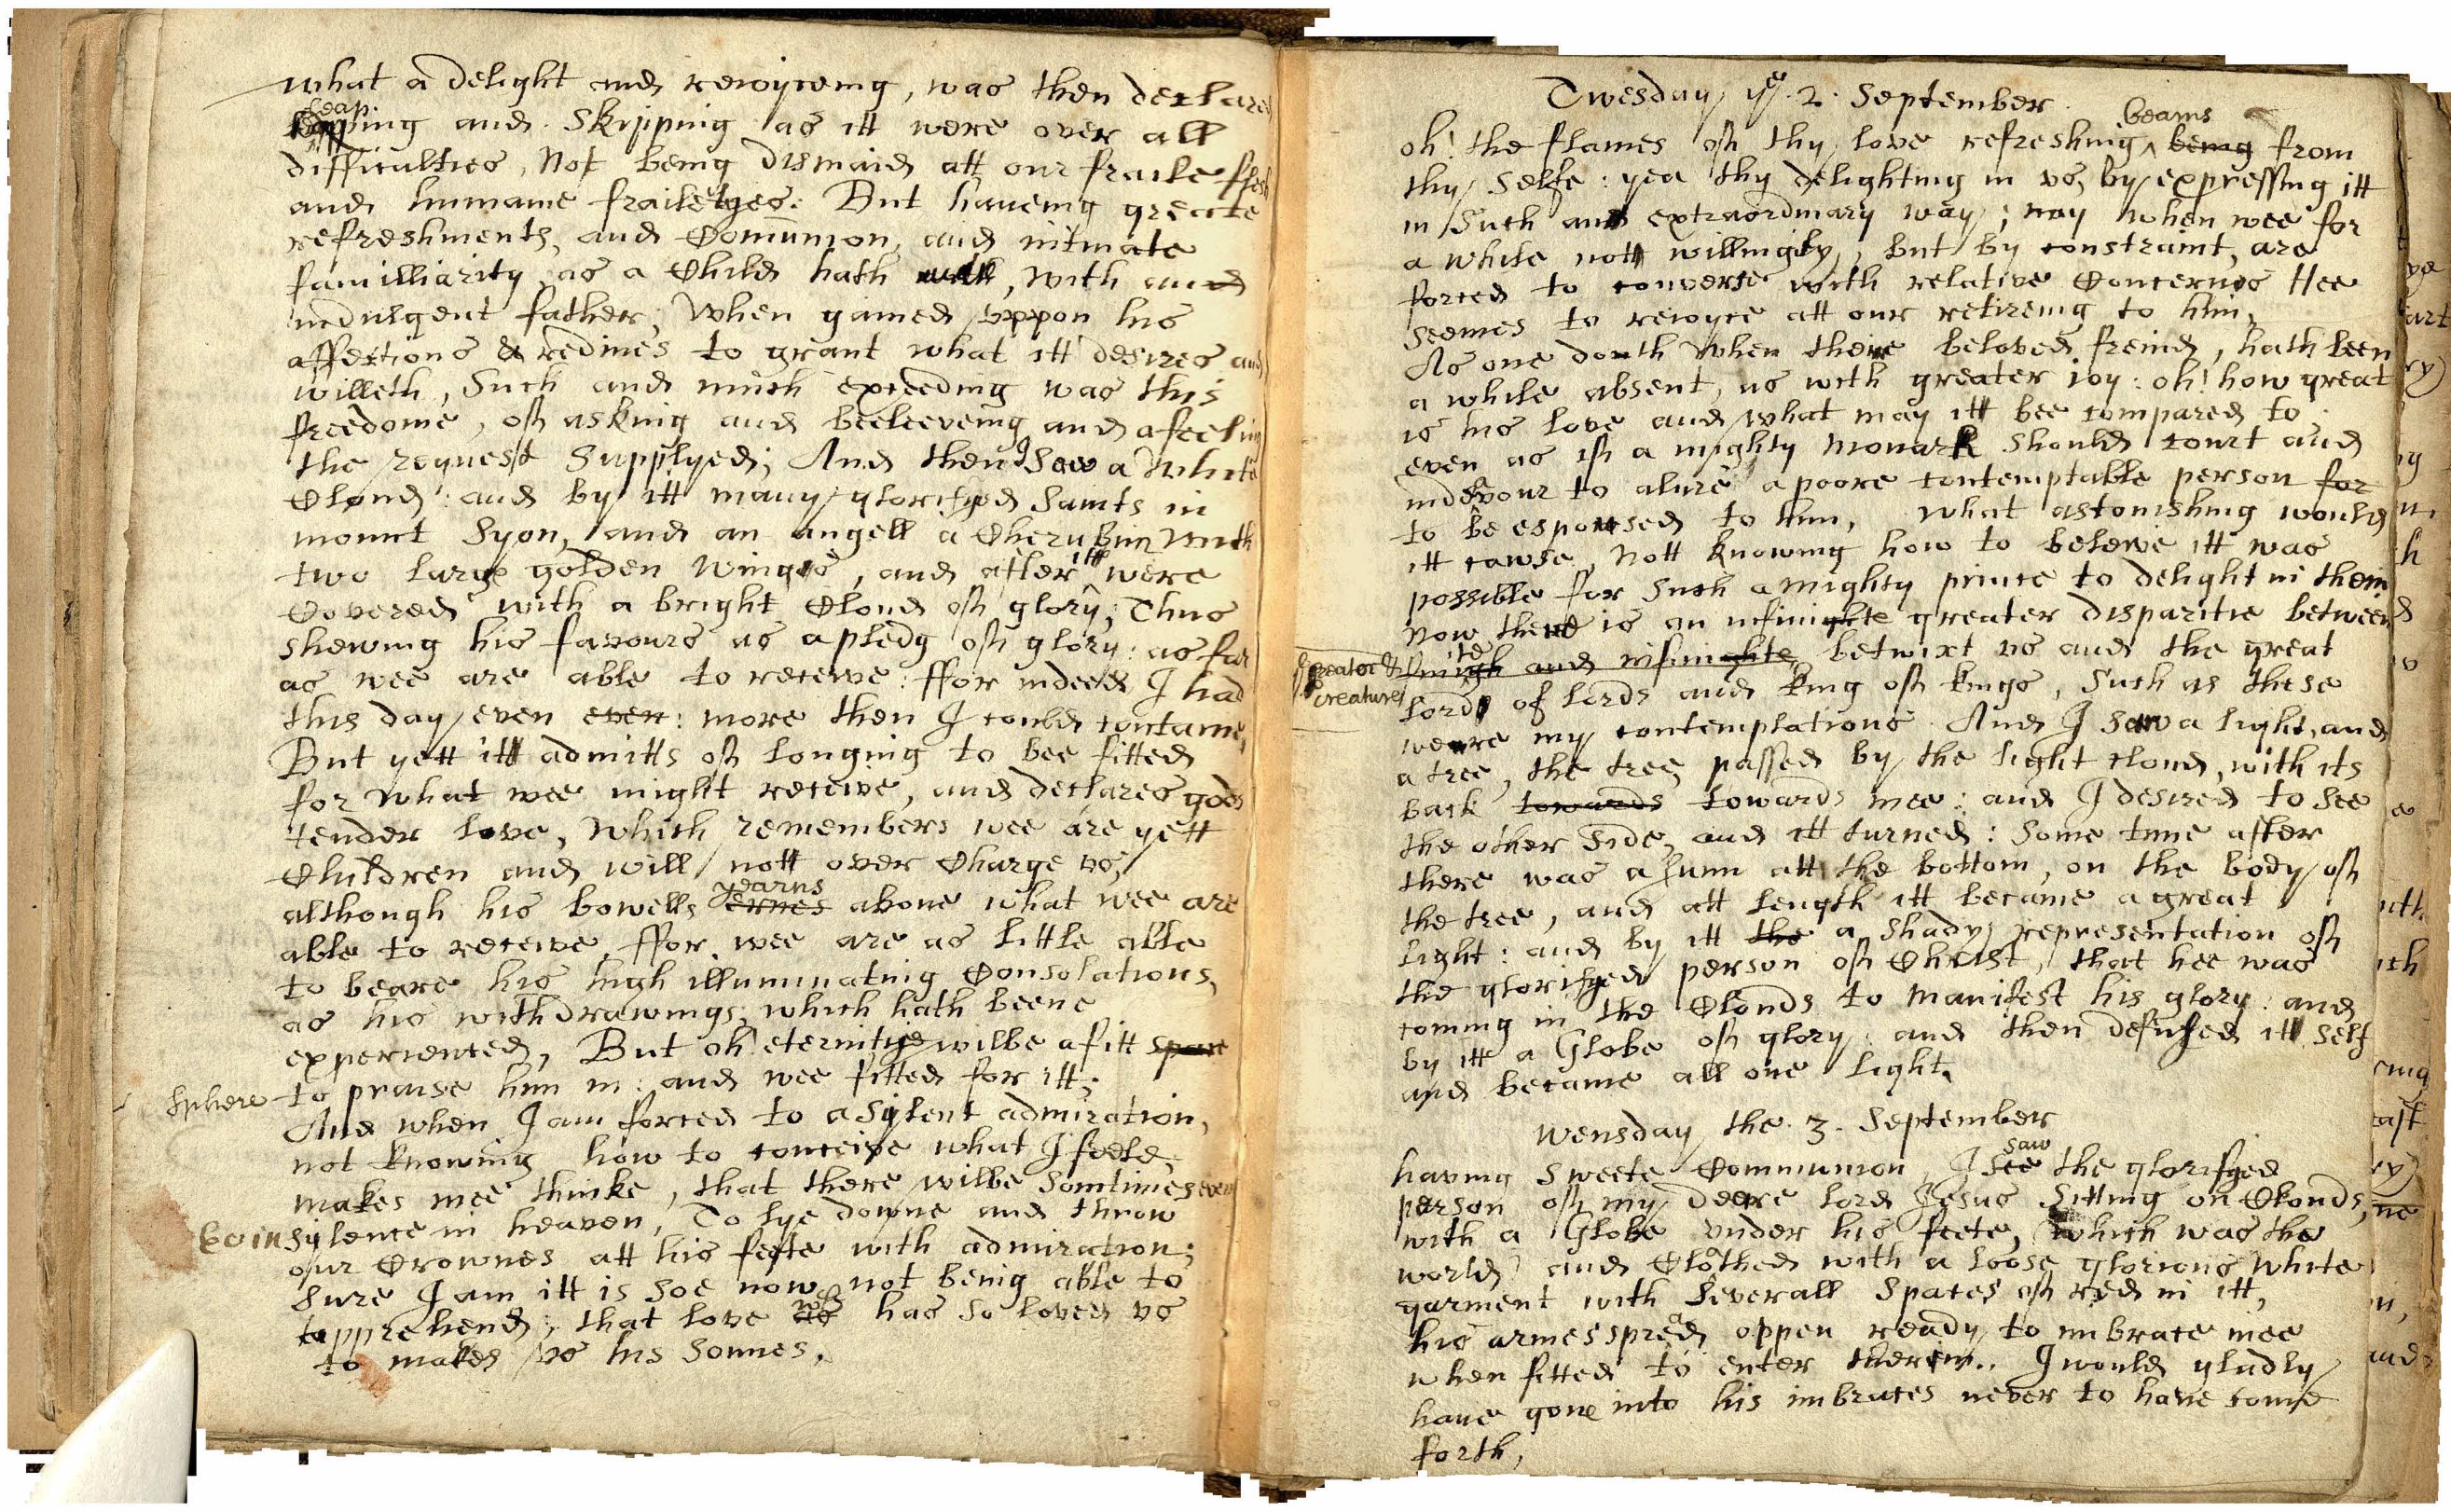 what a delight and reioyceing, was then declared
leap.
leapping and Skipping as itt were over all
difficulties, Not being dismaied att our fraile flesh
and humane frailetyes: But haueing greate
refreshments, and Comunion, and intmate
familliarity, as a Child hath with, with and
indulgent father, When gained uppon his
affections & redines to grant what itt desires and
willeth, Such and much exceeding was this
freedome, of asking and beeleeveing and a feeling
the request Supplyed; And then I Saw a White
Cloud: and by itt many glorifyed Saints in
mount Syon, and an angell a Cherubim With
two large golden Winges, and after itt were
Covered with a bright Cloud of glory; Thus
shewing his favours as a pledg of glory: as far
as wee are able to receive: ffor indeed I had
this day even even: more then I could containe,
But yett itt admitts of longing to bee fitted
for What wee might receive, and declares gods
tender love, Which remembers wee are yett
Children and will nott over Charge vs,
yearns
although his bowells ernes aboue what wee are
able to receive, ffor wee are as little able
to beare his high illuminating Consolations,
as his withdrawings, which hath beene
experienced, But oh! eternitye wilbe a fitt space
Sphere to praise him in: and wee fitted for itt;
And when I am forced to a Sylent admiration,
not knowing how to conceive what I feele,
makes mee thinke, that there wilbe Somtimes even
Sylence in heaven, To lye downe and throw
our Crownes att his feete with admiration;
Sure I am itt is Soe now, not being able to
apprehend, that love as has So loved vs
to maked vs his Sonnes,
Twesday ye. 2. September
beams
oh! the flames of thy love refreshing ^ being from
thy Selfe: yea thy delighting in vs, by expressing itt
in Such and extraordinary way; nay when wee for
a while nott willingly, But by constraint, are
forced to converse with relative Concernes Hee
Seemes to reioyce att our retireing to him,
As one douth When theire beloved freind, hath been
a while absent, as with greater ioy: oh! how great
is his love and what may itt bee compared to
even as if a mighty Monark Should court and
indevour to alure a poore contemptable person for
to be espoused to him, What astonishing would
itt cawse, Nott knowing how to beleive itt was
possible for Such a mighty prince to delight in them
Now there is an infinighte greater disparitie between
Creator &
creature
finigh and infinighte betwixt vs and the great
Lord of Lords and king of kings, Such as these
weare my contemplations. And I Saw a light, and
a tree, the tree passed by the light cloud, with its
back towards towards mee: and I desired to See
the other Side, and itt turned: Some time after
there was a Sunn att the bottom, on the body of
the tree, and att length itt became a great
Light: and by itt the a Shady representation of
the glorifyed person of Christ, that hee was
coming in the Clouds to Manifest his glory: and
by itt a Globe of glory: and then defused itt Self
and became all one light.
Wensday the. 3. September
saw
having Sweete Communion, I See the glorifyed
person of my deare lord Jesus Sitting on Clouds,
with a Globe vnder his feete, Which was the
world, and Clothed with a loose glorious White
garment with Severall Spates of red in itt,
his armes spread oppen ready to imbrace mee
when fitted to enter therein.. I would gladly
haue gone into his imbraces never to have come
forth,